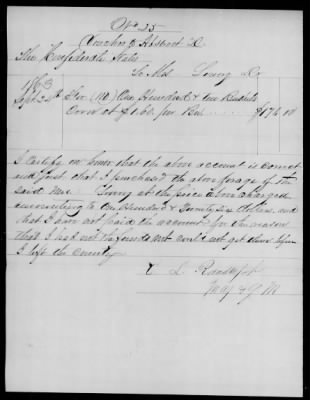 No 25
Voucher to Abstract D.
The Confederate States
To Mrs Lowry Dr
1863
Sept 24th For (110) One Hundred & Ten Bushels
Corn at $1.60 per Bu. $176.00
I certify on honor that the above account is correct
and just that I purchased the above forage of the
said Mrs Lowry at the price above charged
amounting to One Hundred & Seventy Six Dollars, and
that I have not paid the account for the reason
that I had not the funds and could not get them before
I left the Country
L. Randolph
Maj & Q M